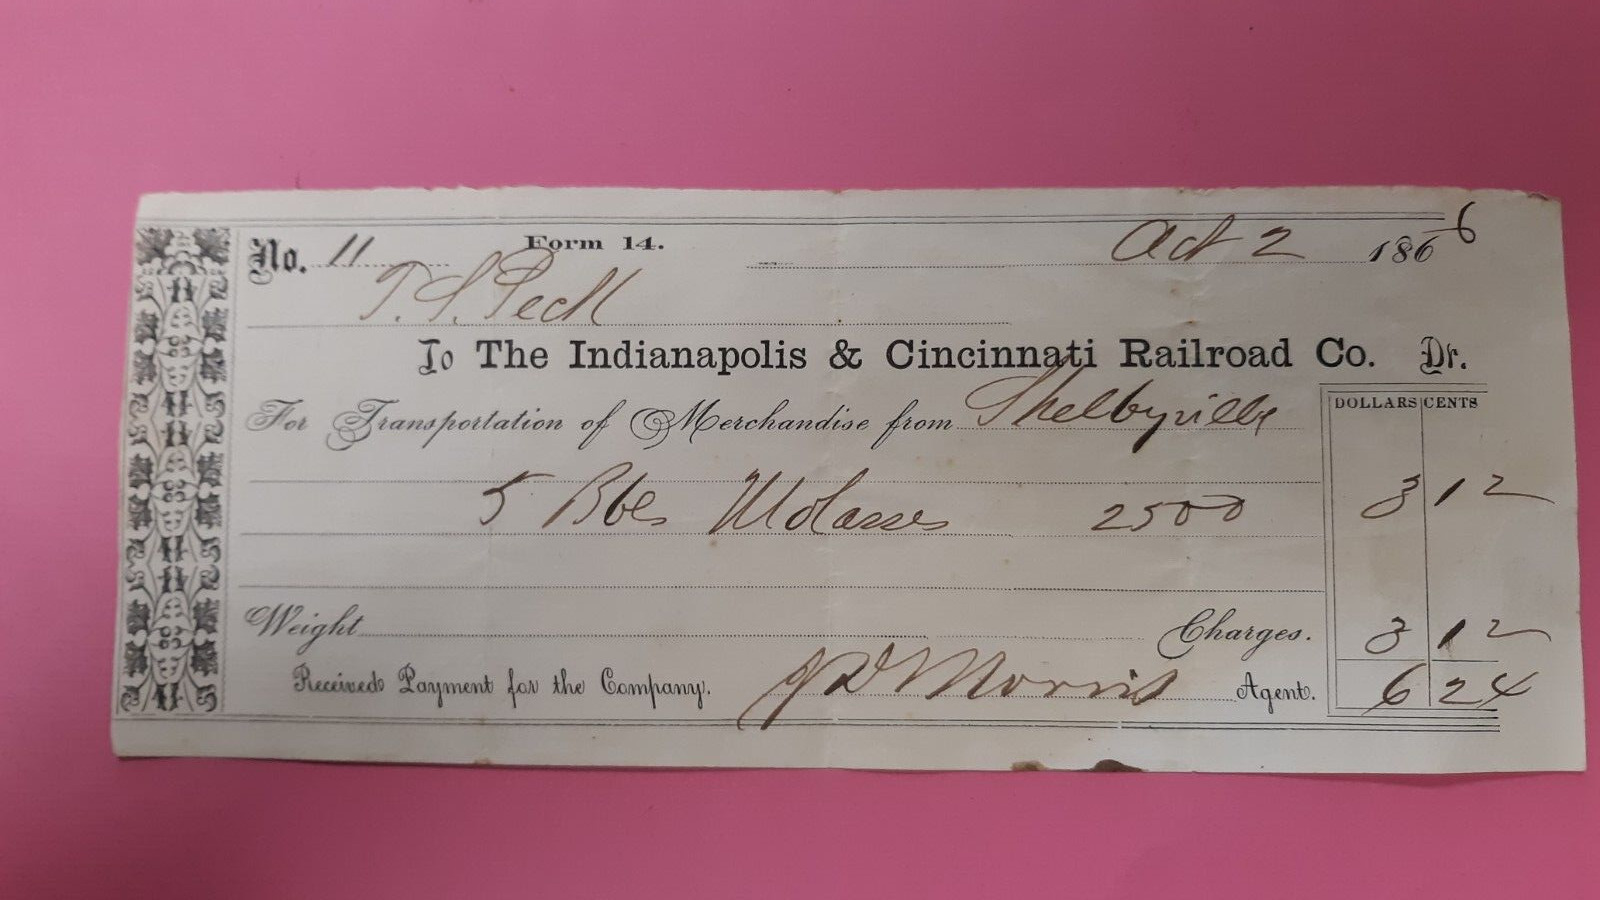 No. 11 Form 14. Oct 2 1866
T. S. Peck
To The Indianapolis & Cincinnati Railroad Co. Dr.
For Transportation of Merchandise from Shelbyville
DOLLARS CENTS
5 Bbls Molasses 2500 3 12
Weight Charges. 3 12
Received Payment for the Company. J D Morris Agent. 6 24